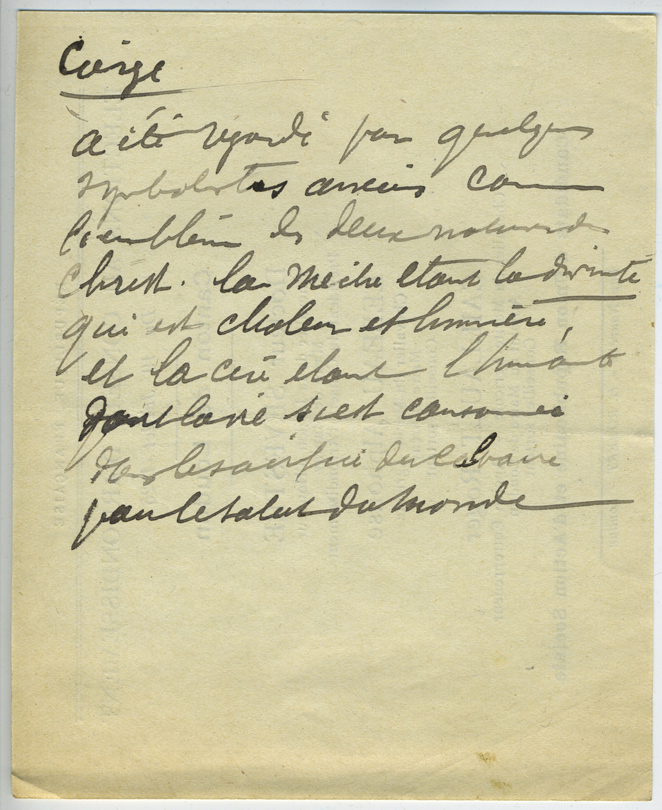 Cierge
a été regardé par quelques
symbolistes anciens comme
l'emblème des deux natures du
Christ. La mèche étant la divinité
qui est chaleur et lumière,
et la cire étant l'humanité
dont la vie s'est consumée
dans le sacrifice du Calvaire
pour le salut du monde